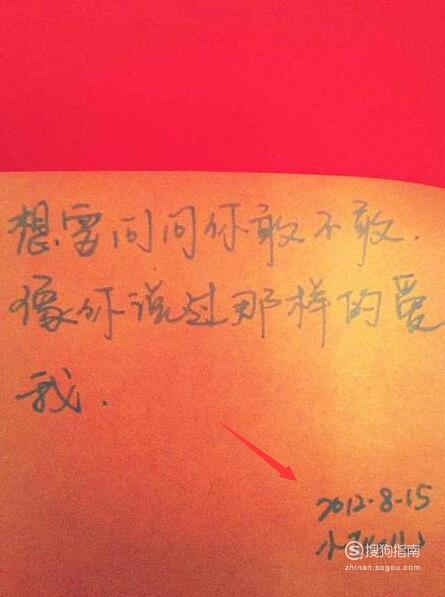 想要问问你敢不敢.
像你说过那样的爱
我.
2012-8-15
小
搜狗指南
zhinan.sogou.com